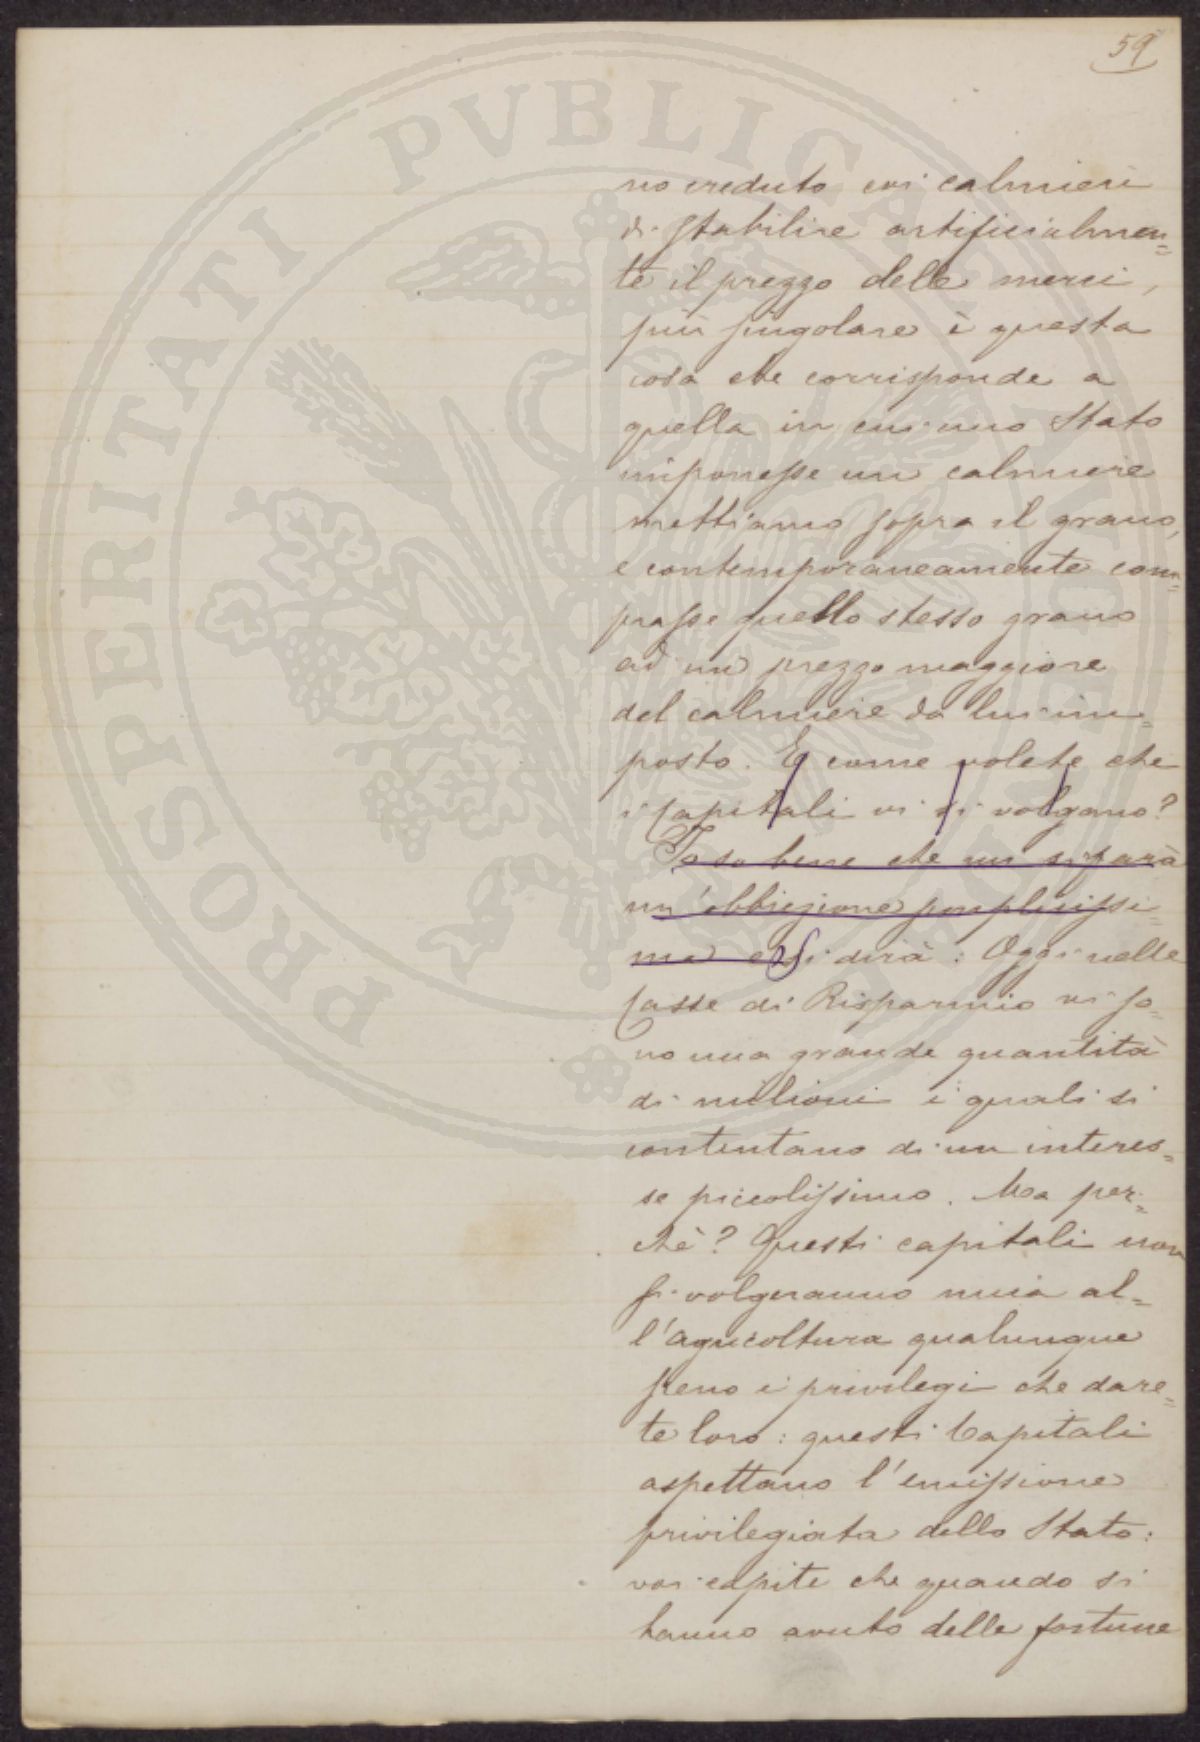 59
no creduto coi calmieri
di stabilire artificialmen=
te il prezzo delle merci,
più singolare è questa
cosa che corrisponde a
quella in cui uno Stato
imponesse un calmiere
mettiamo sopra il grano,
e contemporaneamente com=
prasse quello stesso grano
ad un prezzo maggiore
del calmiere da lui im=
posto. E come volete che
i Capitali vi si volgano?
Io so bene che mi si farà
un'obbiezione semplicissi=
ma e Si dirà: Oggi nelle
Casse di Risparmio vi so=
no una grande quantità
di milioni i quali si
contentano di un interes=
se piccolissimo. Ma per=
chè? Questi capitali non
si volgeranno mica al=
l'agricoltura qualunque
sieno i privilegi che dare=
te loro: questi Capitali
aspettano l'emissione
privilegiata dello Stato:
voi capite che quando si
hanno avuto delle fortune
PROSPERITATI PVBLICAE